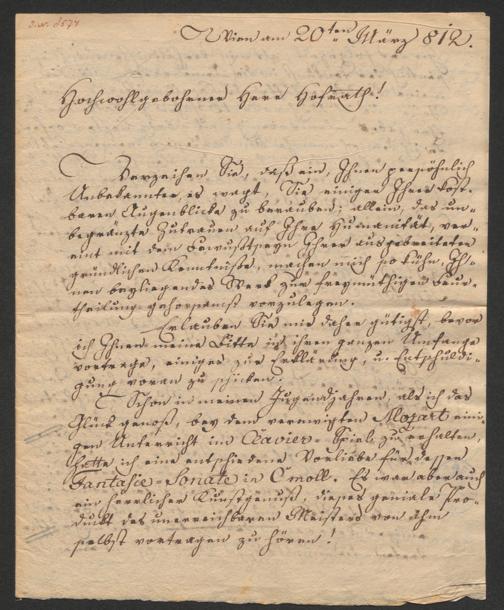 Wien am 20ten März 812.
Hochwohlgebohrner Herr Hofrath!
Verzeihen Sie, daß ein, Ihnen persöhnlich
Unbekannter es wagt, Sie einiger Ihrer kost-
baren Augenblicke zu berauben; allein, das un-
begränzte Zutrauen auf Ihre Humanität, ver-
eint mit dem Bewußtseyn Ihrer ausgebreiteten
gründlichen Kenntniße, machen mich so kühn, Ih-
nen beyliegendes Werk zur freymüthigen Beur-
theilung gehorsamst vorzulegen.
Erlauben Sie mir daher gütigst, bevor
ich Ihnen meine Bitte in ihrem ganzen Umfange
vortrage, einiges zur Erklärung, u. Entschuldi-
gung voran zu schicken.
Schon in meinen Jugendjahren, als ich das
Glück genoß, bey dem verewigten Mozart eini-
gen Unterricht im Clavier-Spiele zu erhalten,
hatte ich eine entschiedene Vorliebe für dessen
Fantasie-Sonate in C moll. Es war aber auch
ein herrlicher Kunstgenuß, dieses geniale Pro-
dukt des unerreichbaren Meisters von ihm
selbst vortragen zu hören!